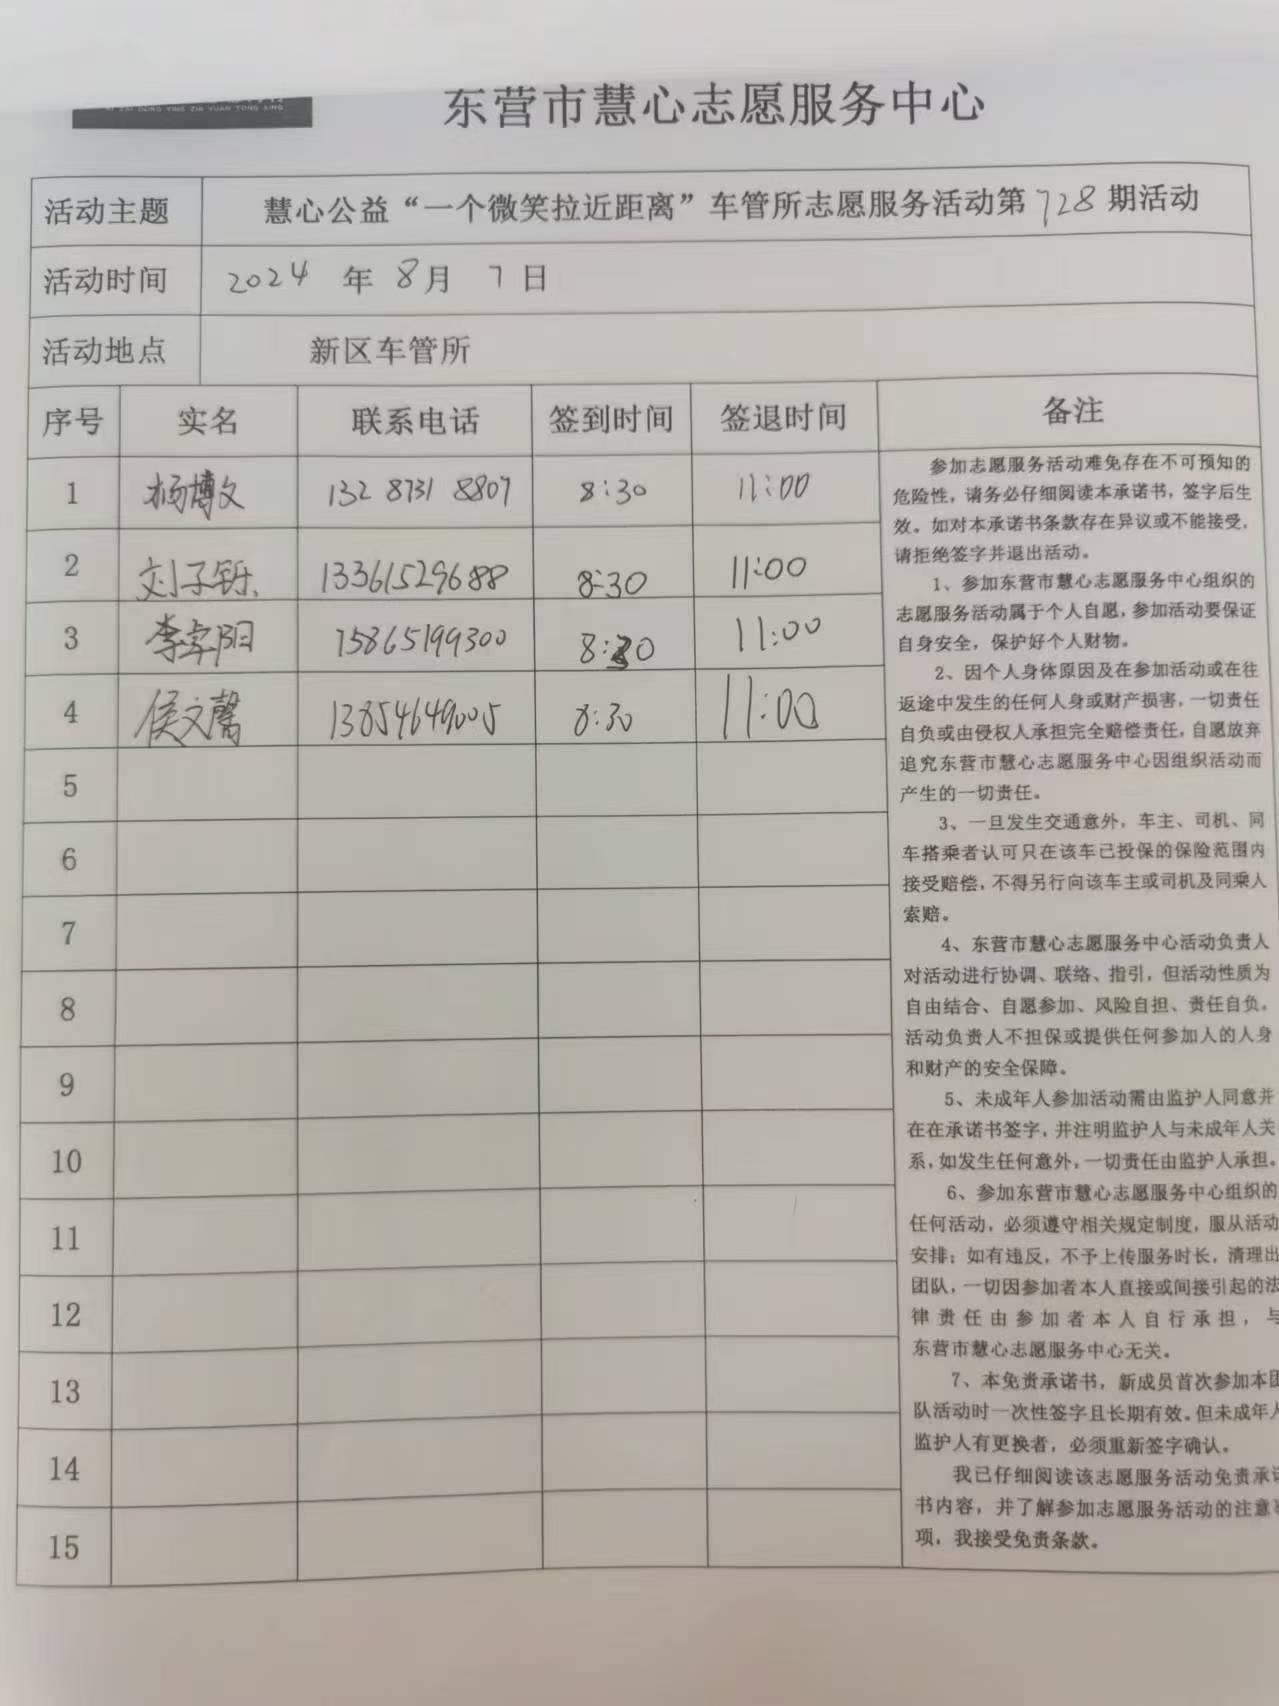 东营市慧心志愿服务中心
活动主题 慧心公益“一个微笑拉近距离”车管所志愿服务活动第728期活动
活动时间 2024 年 8月 7日
活动地点 新区车管所
序号 实名 联系电话 签到时间 签退时间 备注
1 杨博文 132 8731 8807 8:30 11:00
2 刘子铄 13361529688 8:30 11:00
3 李卓阳 15865199300 8:30 11:00
4 侯文馨 13854649005 8:30 11:00
5
6
7
8
9
10
11
12
13
14
15
参加志愿服务活动难免存在不可预知的
危险性，请务必仔细阅读本承诺书，签字后生
效。如对本承诺书条款存在异议或不能接受，
请拒绝签字并退出活动。
1、参加东营市慧心志愿服务中心组织的
志愿服务活动属于个人自愿，参加活动要保证
自身安全，保护好个人财物。
2、因个人身体原因及在参加活动或在往
返途中发生的任何人身或财产损害，一切责任
自负或由侵权人承担完全赔偿责任，自愿放弃
追究东营市慧心志愿服务中心因组织活动而
产生的一切责任。
3、一旦发生交通意外，车主、司机、同
车搭乘者认可只在该车已投保的保险范围内
接受赔偿，不得另行向该车主或司机及同乘人
索赔。
4、东营市慧心志愿服务中心活动负责人
对活动进行协调、联络、指引，但活动性质为
自由结合、自愿参加、风险自担、责任自负。
活动负责人不担保或提供任何参加人的人身
和财产的安全保障。
5、未成年人参加活动需由监护人同意并
在在承诺书签字，并注明监护人与未成年人关
系，如发生任何意外，一切责任由监护人承担。
6、参加东营市慧心志愿服务中心组织的
任何活动，必须遵守相关规定制度，服从活动
安排；如有违反，不予上传服务时长，清理出
团队，一切因参加者本人直接或间接引起的法
律责任由参加者本人自行承担，与
东营市慧心志愿服务中心无关。
7、本免责承诺书，新成员首次参加本团
队活动时一次性签字且长期有效。但未成年人
监护人有更换者，必须重新签字确认。
我已仔细阅读该志愿服务活动免责承诺
书内容，并了解参加志愿服务活动的注意事
项，我接受免责条款。